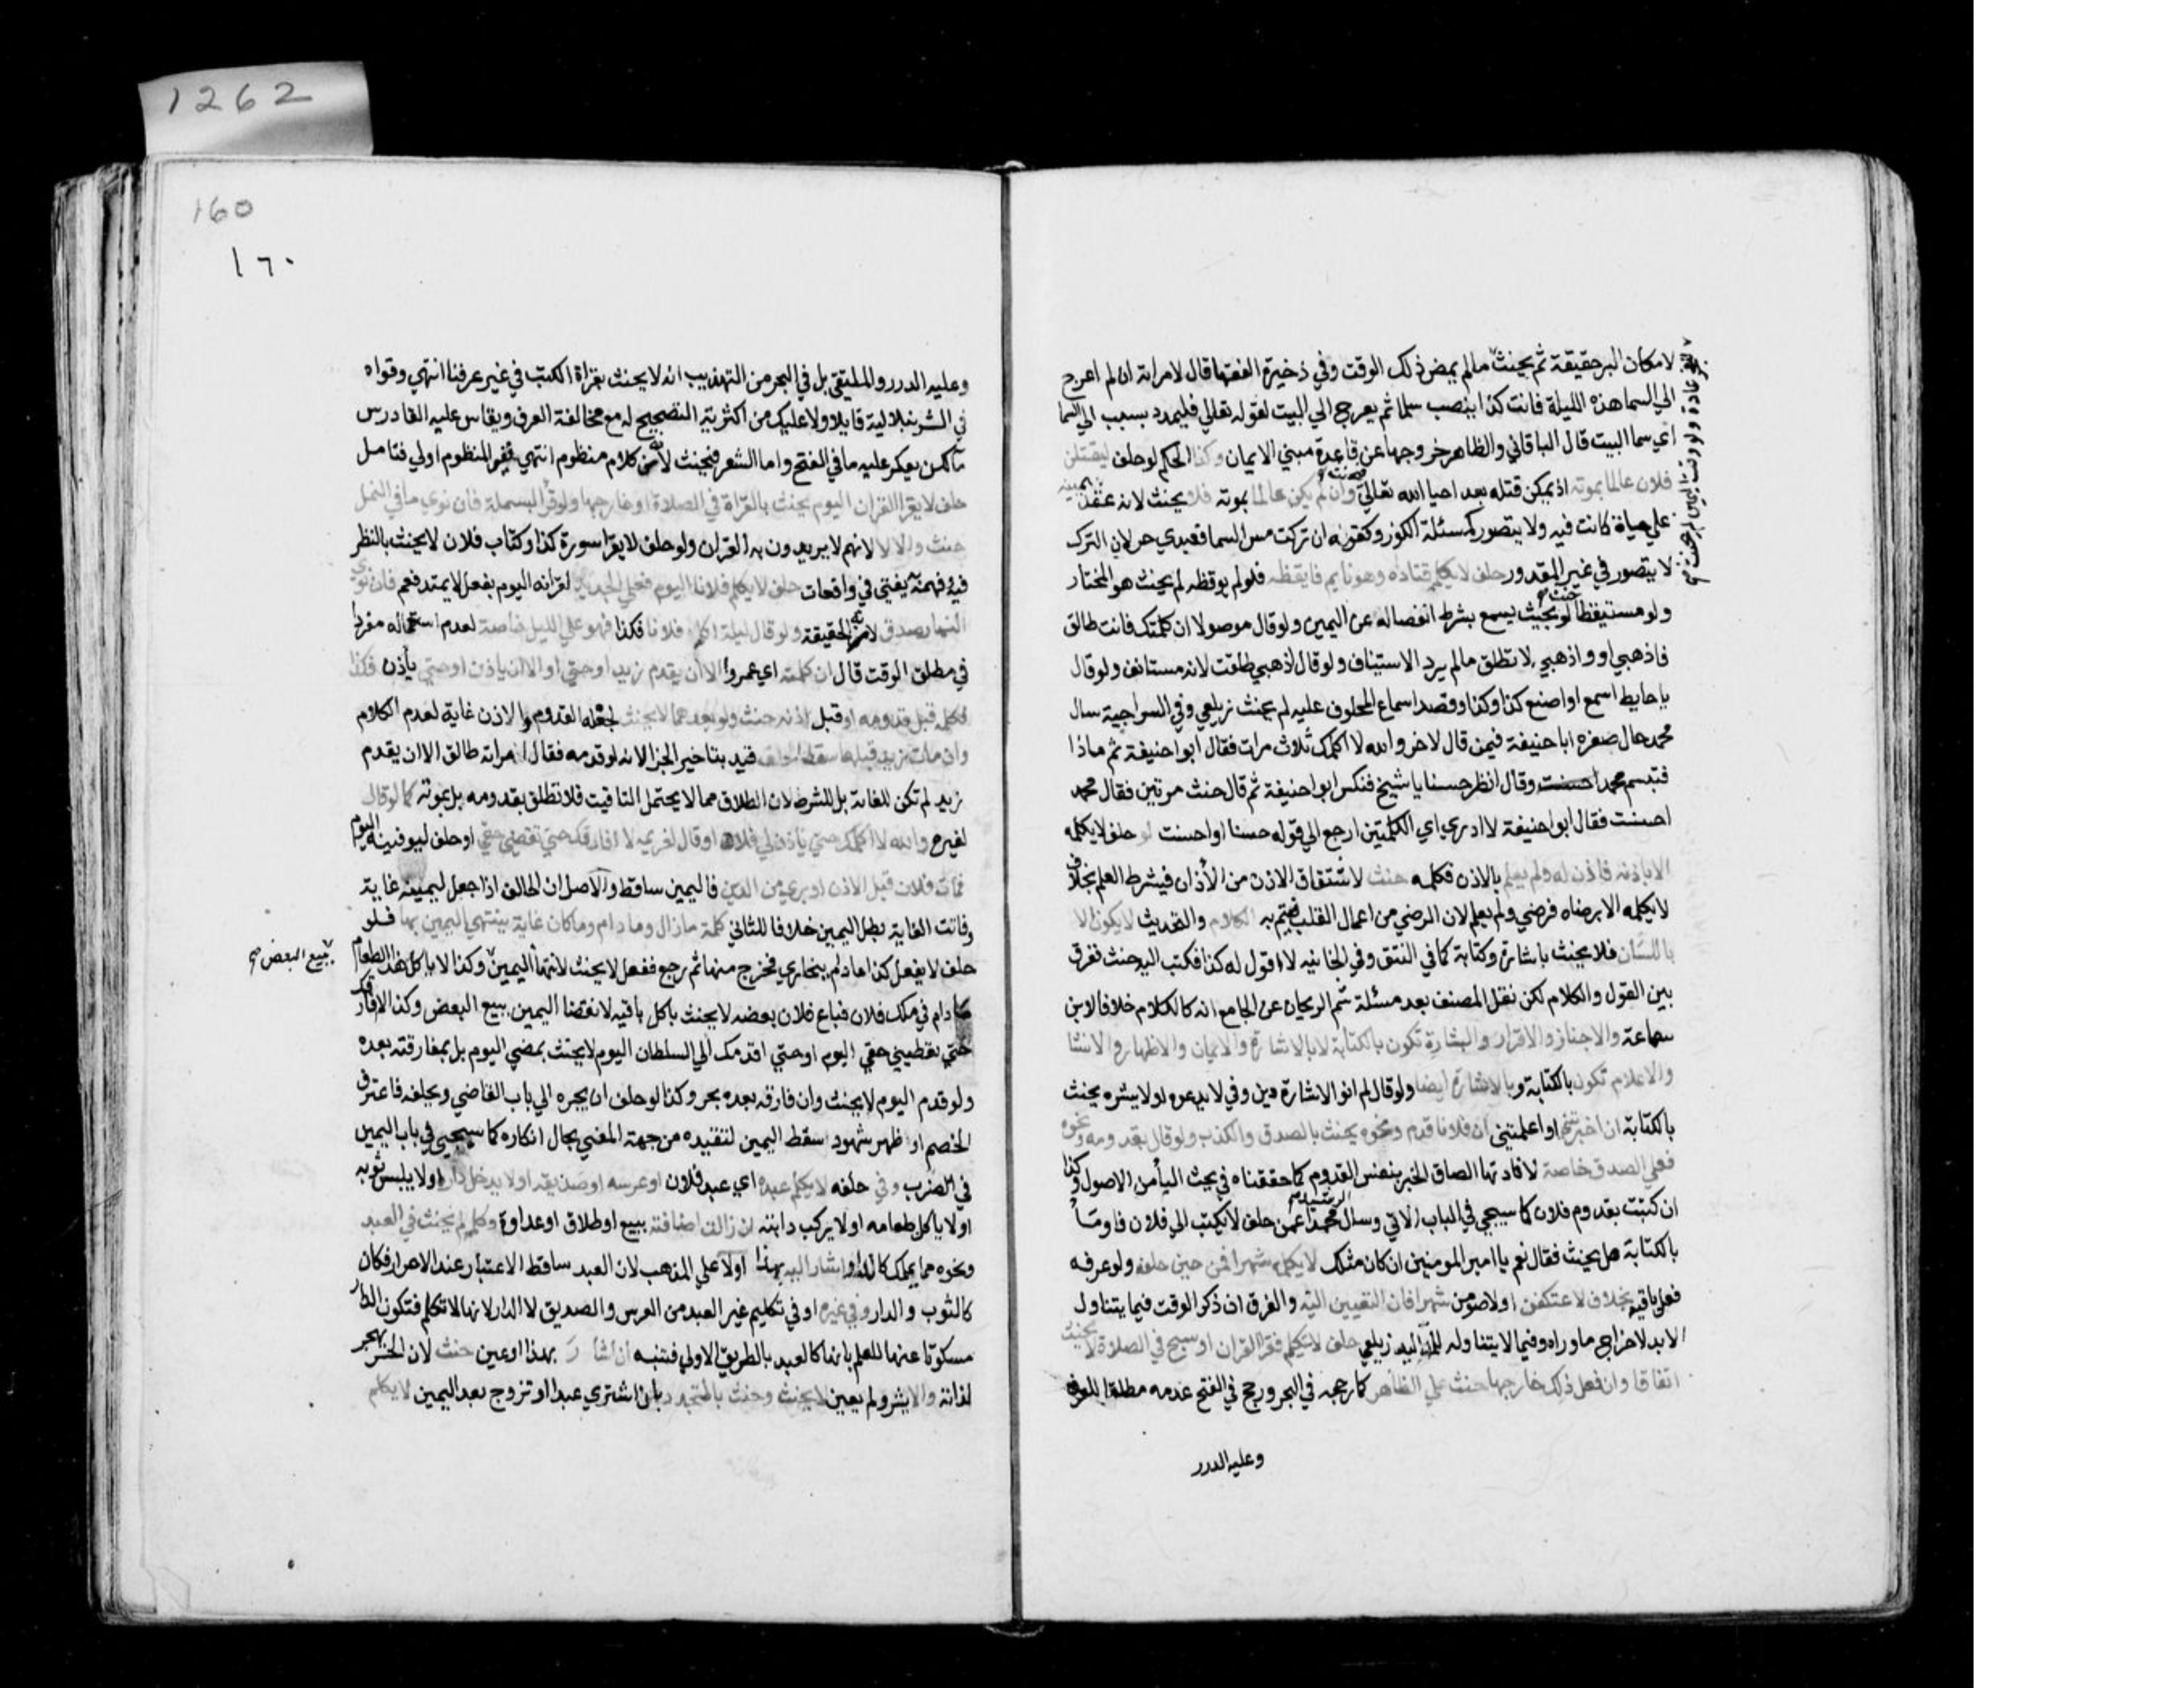 1262
160
١٦٠
لامكان البر حقيقة ثم يحنث مالم يمض ذلك الوقت وفي ذخيرة الفقها قال لامراته ان لم اعرج
الي السما هذه الليلة فانت كذا ينصب سلما ثم يعرج الي البيت لقوله تعالي فليمدد بسبب الي السما
اي سما البيت قال الباقاني والظاهر خروجها عن قاعدة مبني الايمان وكذا الحكم لو حلف ليقتلن
فلان عالما بموته اذ يمكن قتله بعد احيا الله تعالي وان لم يكن عالما بموته فلا يحنث لانه عقد يمينه
علي حياة كانت فيه ولا يتصور كمسئلة الكوز وكقوله ان تركت مس السما فعبدي حر لان الترك
لا يتصور في غير المقدور حلف لا يكلمه فناداه وهو نايم فايقظه فلو لم يوقظه لم يحنث هو المختار
ولو مستيقظا لو بحيث يسمع بشرط انفصاله عن اليمين ولو قال موصولا ان كلمتك فانت طالق
فاذهبي او واذهبي لا تطلق مالم يرد الاستيناف ولو قال اذهبي طلقت لانه مستانف ولو قال
ياحايط اسمع او اصنع كذا وكذا وقصد اسماع المحلوف عليه لم يحنث زيلعي وفي السراجية سال
محمد حال صغره ابا حنيفة فيمن قال لاخر والله لا اكلمك ثلاث مرات فقال ابو حنيفة ثم ماذا
فتبسم محمد احسنت وقال انظر حسنا يا شيخ فنكس ابو حنيفة ثم قال حنث مرتين فقال محمد
احسنت فقال ابو حنيفة لا ادري اي الكلمتين ارجع الي قوله حسنا او احسنت او حلف لا يكلمه
الا باذنه فاذن له ولم يعلم بالاذن فكلمه حنث لاشتقاق الاذن من الأذان فيشرط العلم بخلاف
لا يكلمه الا برضاه فرضي ولم يعلم لان الرضي من اعمال القلب فيتم به الكلام والتحديث لا يكون الا
باللسان فلا يحنث باشارة وكتابة كما في النتف وفي الخانيه لا اقول له كذا فكتب اليه حنث ففرق
بين القول والكلام لكن نقل المصنف بعد مسئلة شم الريحان عن الجامع انه كالكلام خلافا لابن
سماعة والاخبار والاقرار والبشارة تكون بالكتابة لا بالاشارة والايمان والاظهار والانشا
والاعلام تكون بالكتابة وبالاشارة ايضا ولو قال لم انو الاشارة دين وفي لا يدعوه او لا يبشره يحنث
بالكتابة ان اخبرتني او اعلمتني ان فلانا قدم ونحوه يحنث بالصدق والكذب ولو قال بقدومه ونحوه
فعلي الصدق خاصة لافادتها الصاق الخبر بنفس القدوم كما حققناه في بحث اليا من الاصول وكذا
ان كتبت بقدوم فلان كما سيجي في الباب الاتي وسال الرشيد محمدا عمن حلف لا يكتب الي فلان فاومأ
بالكتابة هل يحنث فقال نعم يا امير المومنين ان كان مثلك لا يكلمه شهرا فمن حين حلفه ولو عرفه
فعلي باقيه بخلاف لاعتكفن او لاصومن شهرا فان التعيين اليه والفرق ان ذكر الوقت فيما يتناول
الابد لاخراج ما وراه وفيما لا يتناوله للمد اليه زيلعي حلف لا يتكلم فقرا القران او سبح في الصلاة لا يحنث
اتفاقا وان فعل ذلك خارجها حنث علي الظاهر كما رجحه في البحر ورجح في الفتح عدمه مطلقا للعرف
وعليه الدرر
وعليه الدرر والملتقي بل في البحر من التهذيب انه لا يحنث بقراة الكتب في غير عرفنا انتهي وقواه
في الشرنبلالية قايلا ولا عليك من اكثرية التصحيح له مع مخالفة العرف ويقاس عليه القا درس
ما لكن يعكر عليه ما في الفتح واما الشعر فيحنث لانه كلام منظوم انتهي فغير المنظوم اولي فتامل
حلف لا يقرا القران اليوم يحنث بالقراة في الصلاة او خارجها ولو قرأ البسملة فان نوي ما في النمل
حنث والا لا لانهم لا يريدون به القران ولو حلف لا يقرا سورة كذا وكتاب فلان لا يحنث بالنظر
فيه وفهمه به يفتي في واقعات حلف لا يكلم فلانا اليوم فعلي الجديدين لقرانه اليوم بفعل لا يمتد فعم فان نوي
النهار صدق لانه الحقيقة ولو قال ليلة اكلم فلانا فكذا فهو علي الليل خاصة لعدم استعماله مفردا
في مطلق الوقت قال ان كلمته اي عمروا الا ان يقدم زيد او حتي او الا ان ياذن او حتي يأذن فكذا
فكلمه قبل قدومه او قبل اذنه حنث ولو بعدهما لا يحنث لجعله القدوم والاذن غاية لعدم الكلام
وان مات زيد قبلهما سقط الحلف قيد بتاخير الجزا لانه لو قدمه فقال امراته طالق الا ان يقدم
زيد لم تكن للغاية بل للشرط لان الطلاق مما لا يحتمل التاقيت فلا تطلق بقدومه بل بموته كما لو قال
لغيره والله لا اكلمك حتي ياذن لي فلان او قال لغريمه لا افارقك حتي تقضي حقي او حلف ليوفينه اليوم
فمات فلان قبل الاذن او بري من الدين فاليمين ساقط والاصل ان الحالف اذا جعل ليمينه غاية
وفاتت الغاية بطل اليمين خلافا للثاني كلمة مازال ومادام وماكان غاية ينتهي اليمين بها فلو
حلف لا يفعل كذا مادام ببخاري فخرج منها ثم رجع ففعل لا يحنث لانتهأ اليمين وكذا لا ياكل هذا الطعام
مادام في ملك فلان فباع فلان بعضه لا يحنث باكل باقيه لانقضا اليمين ببيع البعض وكذا لا افارقك
حتي تقضيني حقي اليوم او حتي اقدمك الي السلطان اليوم لا يحنث بمضي اليوم بل بمفارقته بعده
ولو قدم اليوم لا يحنث وان فارقه بعده بحر وكذا لو حلف ان يجره الي باب القاضي ويحلفه فاعترف
الخصم او ظهر شهود سقط اليمين لتقيده من جهة المعني بحال انكاره كما سيجيي في باب اليمين
في الضرب وفي حلفه لا يكلم عبده اي عبد فلان او عرسه او صديقه او لا يدخل داره او لا يلبس ثوبه
او لا ياكل طعامه او لا يركب دابته ان زالت اضافته ببيع او طلاق او عداوة وكلمه لم يحنث في العبد
ونحوه مما يملك كالدار اشار اليه بهذا اولا علي المذهب لان العبد ساقط الاعتبار عند الاحرار فكان
كالثوب والدار وفي غيره اي في تكليم غير العبد من العرس والصديق لا الدار لانها لا تكلم فتكون الدار
مسكوتا عنها للعلم بانها كالعبد بالطريق الاولي فتنبه ان اشار بهذا او عين حنث لان الحر يهجر
لذاته والا يشر ولم يعين لا يحنث وحنث بالمتجدد بان اشتري عبدا او تزوج بعد اليمين لا يكلم
ببيع البعض صح